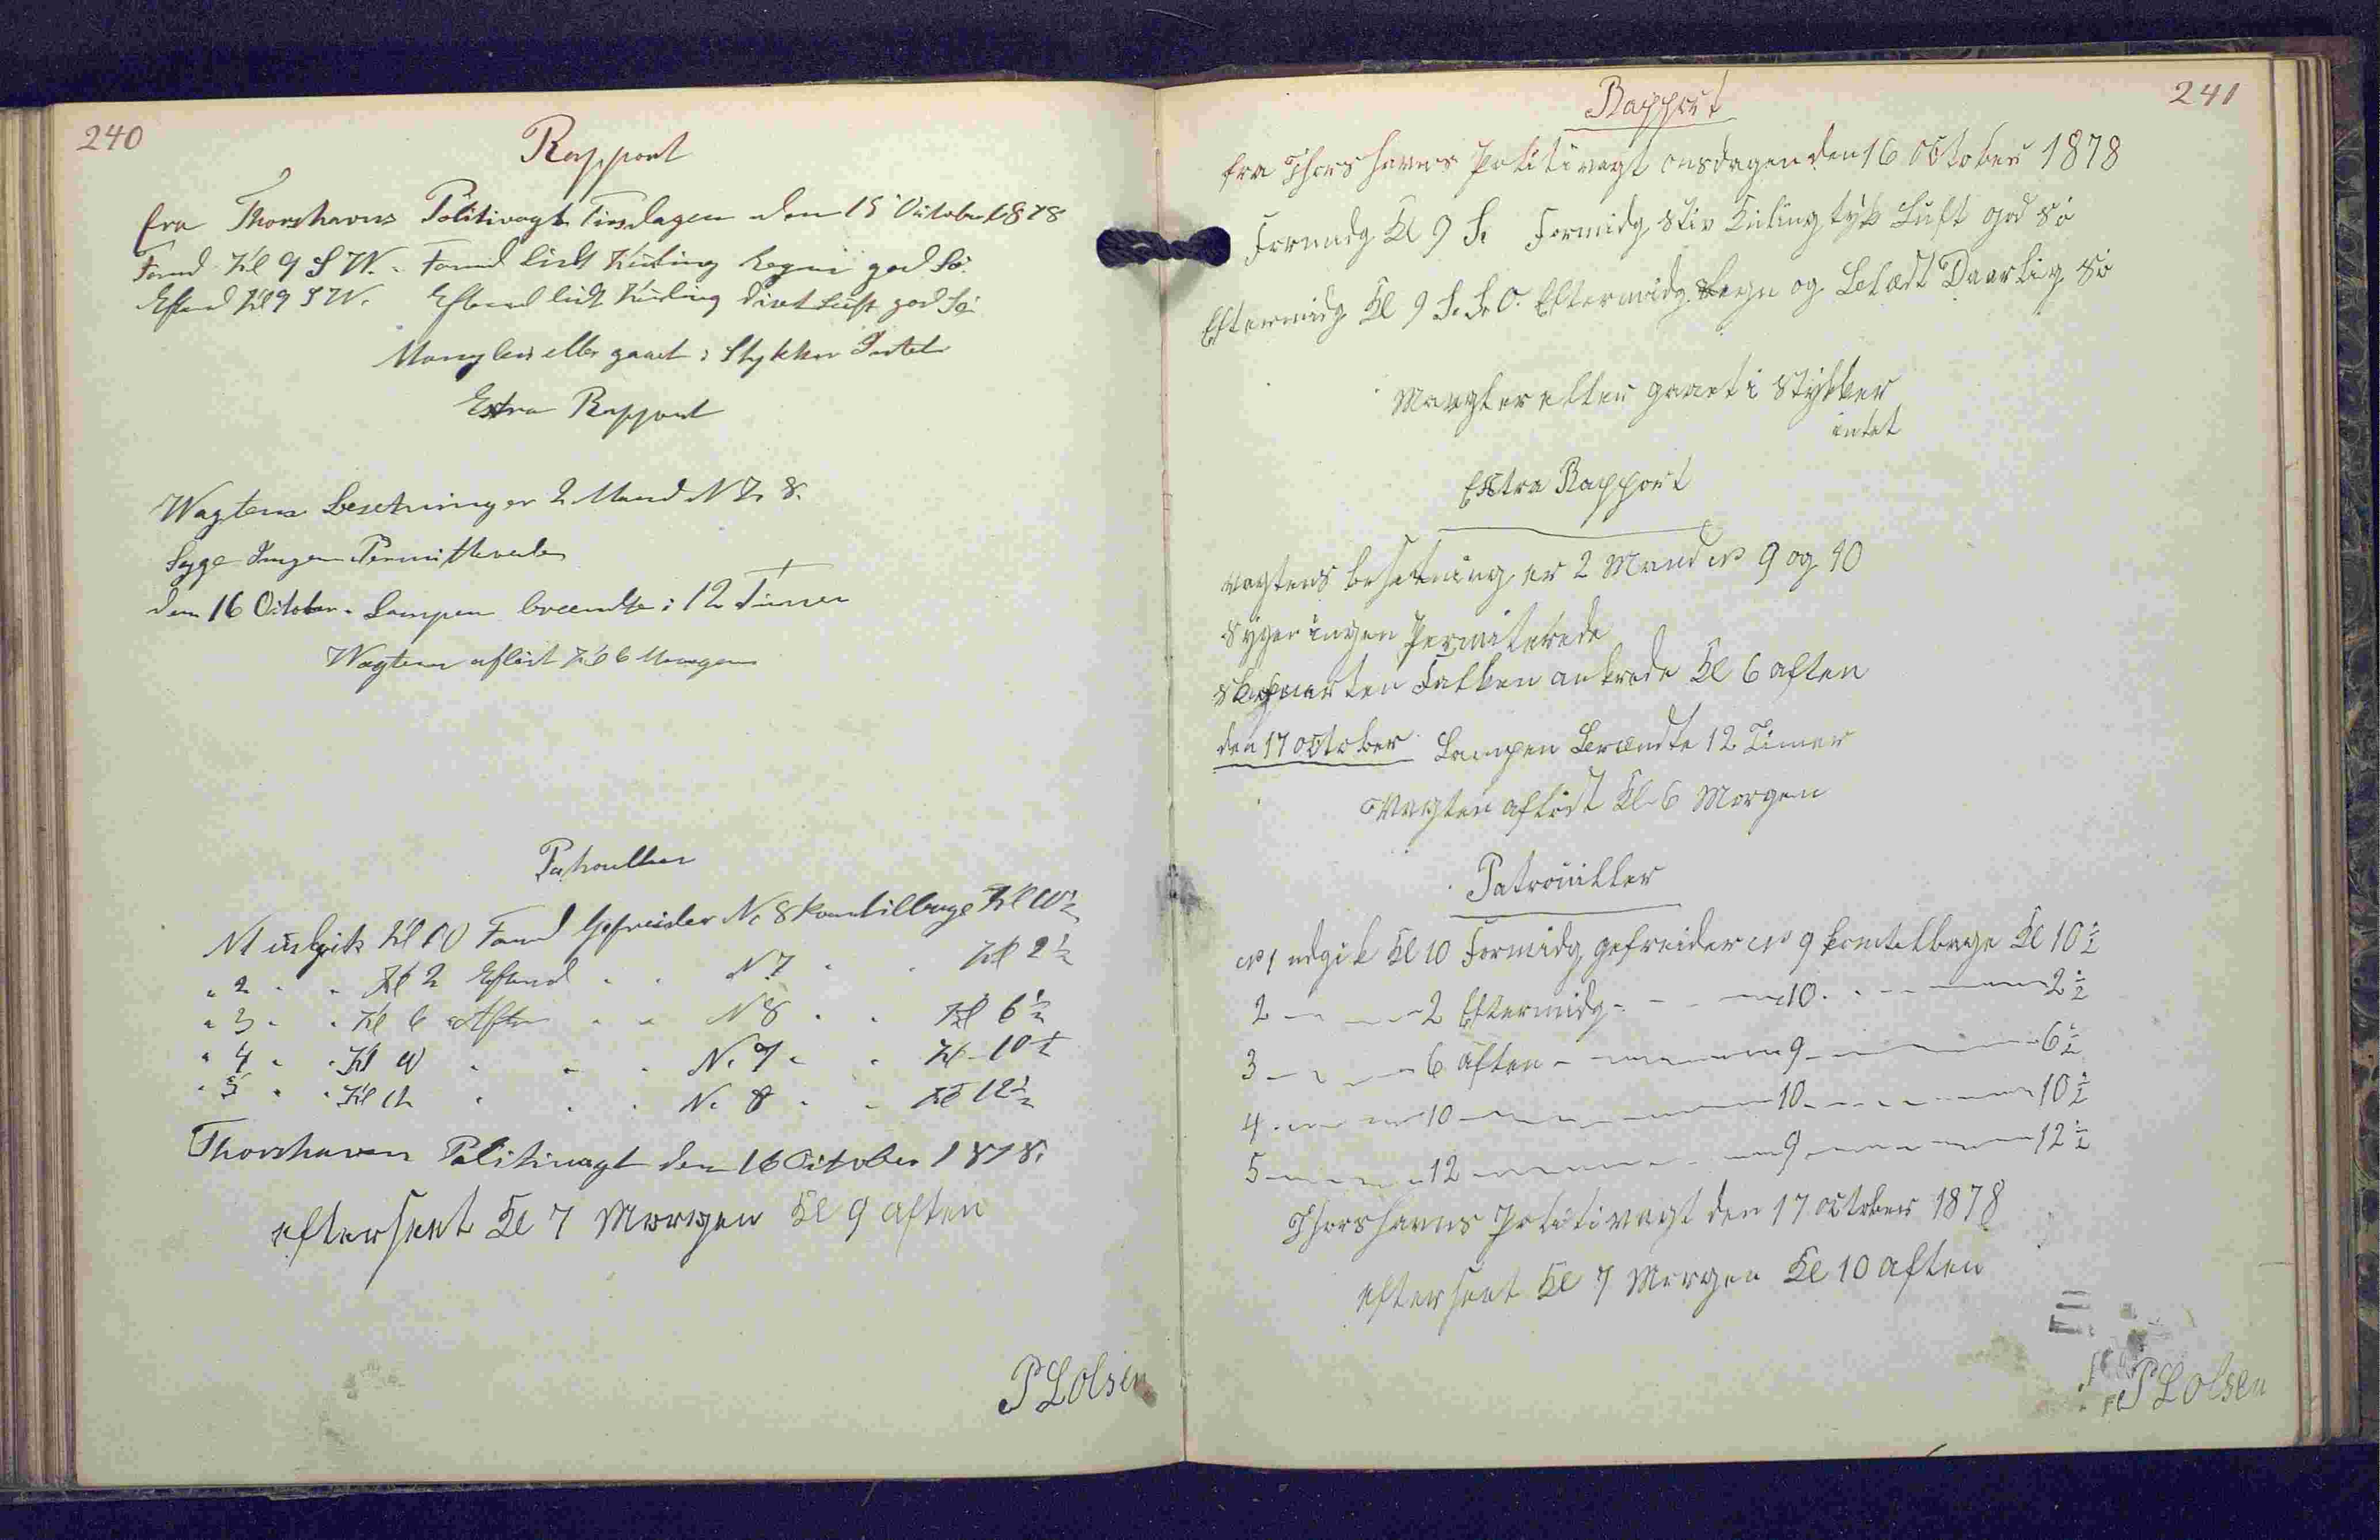 240
Rapport
fra Thorshavns Politivagt Tirsdagen den 15 October 1878
Formd Kl 9 S W. Formd lidt Kuling Regn god Sø.
Eftmd Kl 9 S W. Eftmd lidt Kuling Luft god Sø
Mangler eller gaaet i Stykker Intet
Extra Rapport
Wagtens Besetning er 2 Mand N 7. 8.
Syge Ingen Permitterede
den 16 October. Lampen brændte i 12 Timer
Wagten afløst Kl 6 Morgen
Patrouller
N1 udgik Kl 10 Formd Gefreider No 8 kom tilbage Kl 10½
" 2 " " Kl 2 Eftmd " " N 7 " " Kl 2½
" 3 " " Kl 6 Aften " " N 8 " " Kl 6½
" 4 " " Kl 10 " " " N. 7 " " Kl 10½
" 5 " " Kl 12 " " " N. 8 " " Kl 12½
Thorshavn Politivagt den 16 October 1878.
efterseet Kl 7 Morgen Kl 9 aften
P L Olsen
241
Rapport
fra Thorshavns Politivagt onsdagen den 16 October 1878
Formidg Kl 9 S. Formidg Stiv Kuling tyk Luft god Sø
Eftermidg Kl 9 S. S. O. Eftermidg Regn og Daarlig Sø
Mangler eller gaaet i Stykker
intet
Extra Rapport
vagtens besetning er 2 Mand No 9 og 10
Syge ingen Permiterede
Skonnerten Falken ankrede Kl 6 aften
den 17 October Lampen Brændte 12 Timer
Vagten afløst Kl 6 Morgen
Patrouiller
No 1 udgik Kl 10 Formidg gefreider No 9 kom tilbage Kl 10½
2 — — 2 Eftermidg — — 10 — — 2½
3 — — 6 aften — — 9 — — 6½
4 — — 10 — — 10 — — 10½
5 — — 12 — — 9 — — 12½
Thorshavns Politivagt den 17 October 1878
efterseet Kl 7 Morgen Kl 10 aften
P L Olsen